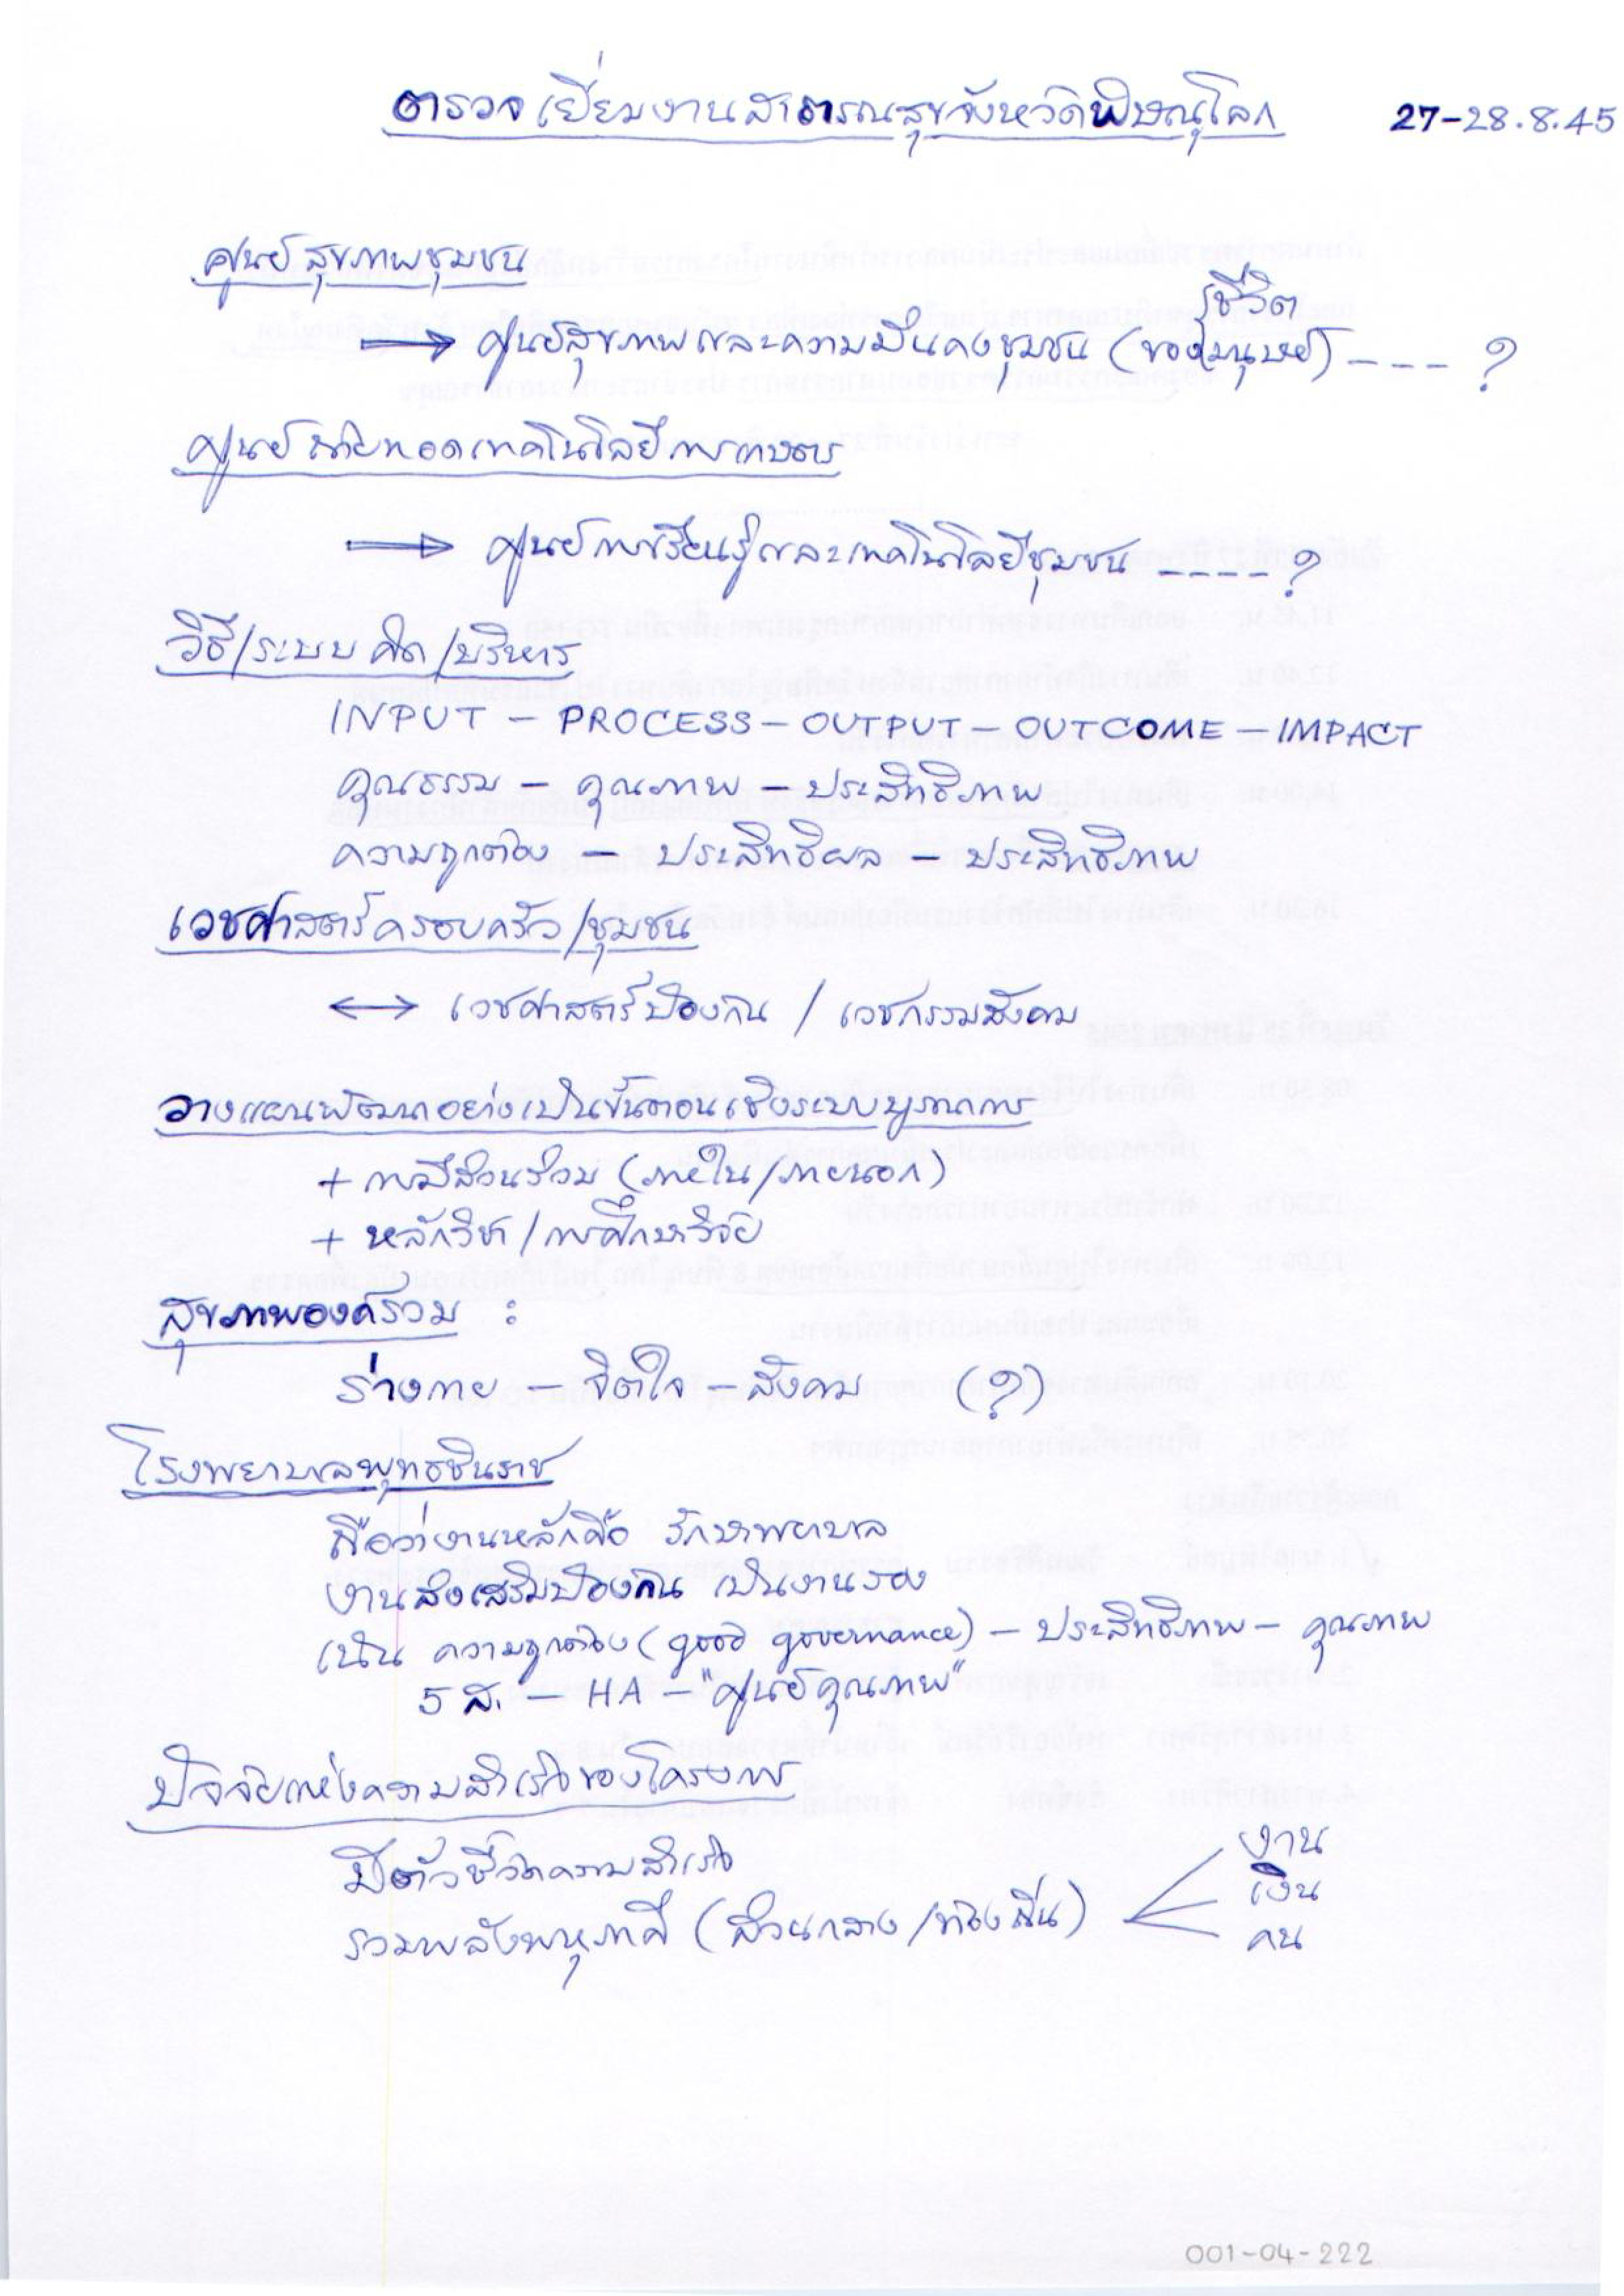 ตรวจเยี่ยมงานสาธารณสุขจังหวัดพิษณุโลก 27-28.8.45
ศูนย์สุขภาพชุมชน
→ ศูนย์สุขภาพและความมั่นคงชุมชน (ของชีวิตมนุษย์) ---- ?
ศูนย์ถ่ายทอดเทคโนโลยีการเกษตร
→ ศูนย์การเรียนรู้และเทคโนโลยีชุมชน ---- ?
วิธี/ระบบ คิด/บริหาร
INPUT - PROCESS - OUTPUT - OUTCOME - IMPACT
คุณธรรม - คุณภาพ - ประสิทธิภาพ
ความถูกต้อง - ประสิทธิผล - ประสิทธิภาพ
เวชศาสตร์ครอบครัว/ชุมชน
↔ เวชศาสตร์ป้องกัน / เวชกรรมสังคม
วางแผนพัฒนาอย่างเป็นขั้นตอนเชิงระบบบูรณาการ
+ การมีส่วนร่วม (ภายใน/ภายนอก)
+ หลักวิชา/การศึกษาวิจัย
สุขภาพองค์รวม :
ร่างกาย - จิตใจ - สังคม (?)
โรงพยาบาลพุทธชินราช
ถือว่างานหลักคือ รักษาพยาบาล
งานส่งเสริมป้องกัน เป็นงานรอง
เน้น ความถูกต้อง (good governance) - ประสิทธิภาพ - คุณภาพ
5 ส. - HA - "ศูนย์คุณภาพ"
ปัจจัยแห่งความสำเร็จของโครงการ
มีตัวชี้วัดความสำเร็จ
รวมพลังพหุภาคี (ส่วนกลาง/ท้องถิ่น)
งาน
เงิน
คน
001-04-222